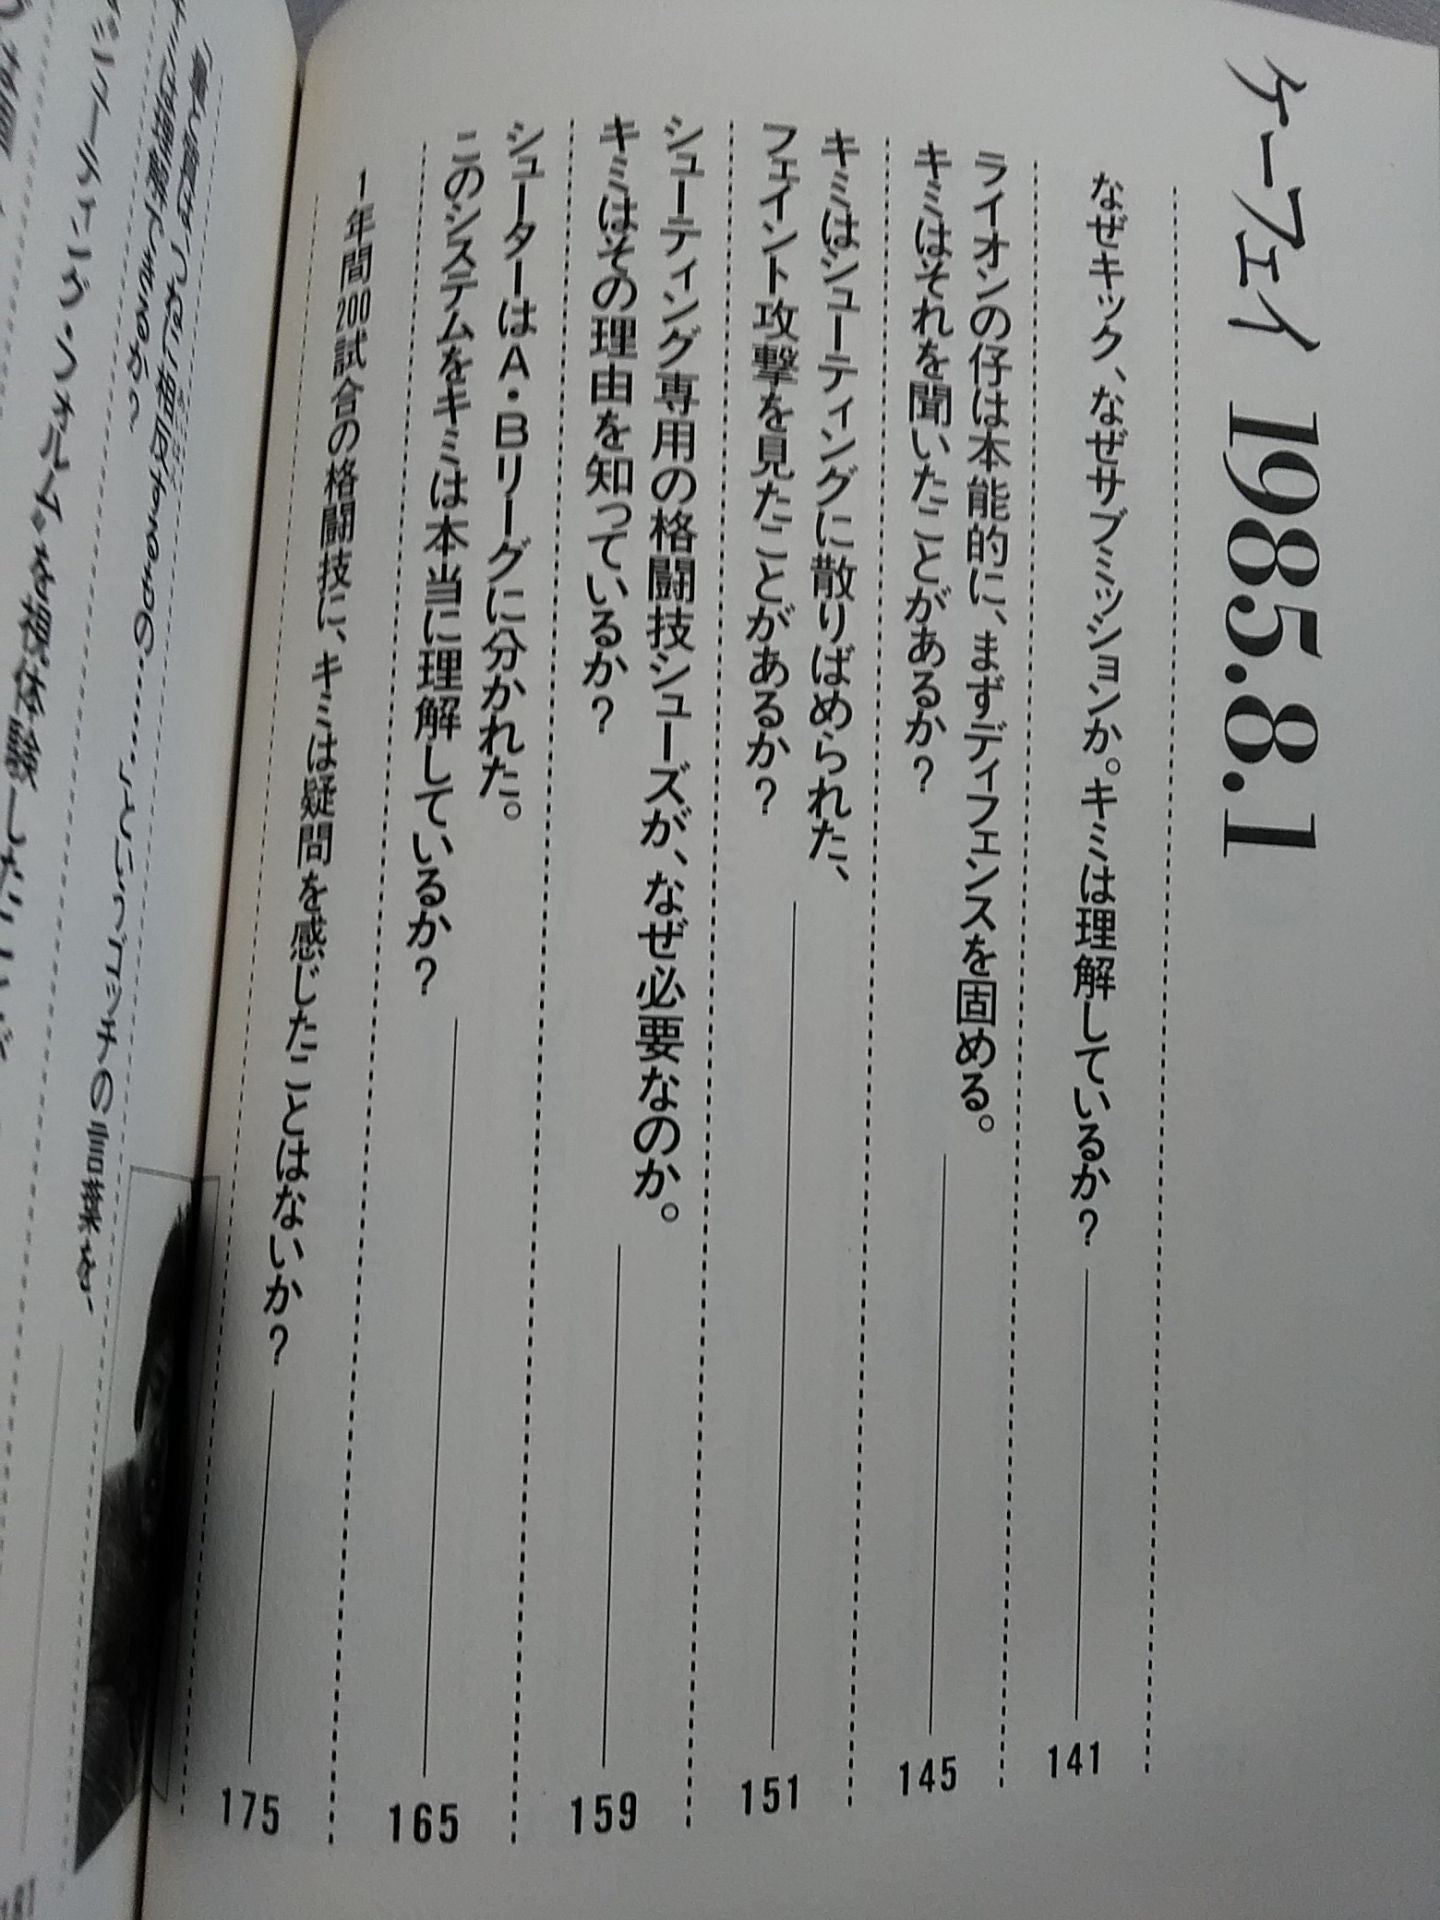 ケーフェイ 1985.8.1
なぜキック、なぜサブミッションか。キミは理解しているか？ 141
ライオンの仔は本能的に、まずディフェンスを固める。
キミはそれを聞いたことがあるか？ 145
キミはシューティングに散りばめられた、
フェイント攻撃を見たことがあるか？ 151
シューティング専用の格闘技シューズが、なぜ必要なのか。
キミはその理由を知っているか？ 159
シューターはA・Bリーグに分かれた。
このシステムをキミは本当に理解しているか？ 165
1年間200試合の格闘技に、キミは疑問を感じたことはないか？ 175
というゴッチの言葉を、
キミは理解できるか？